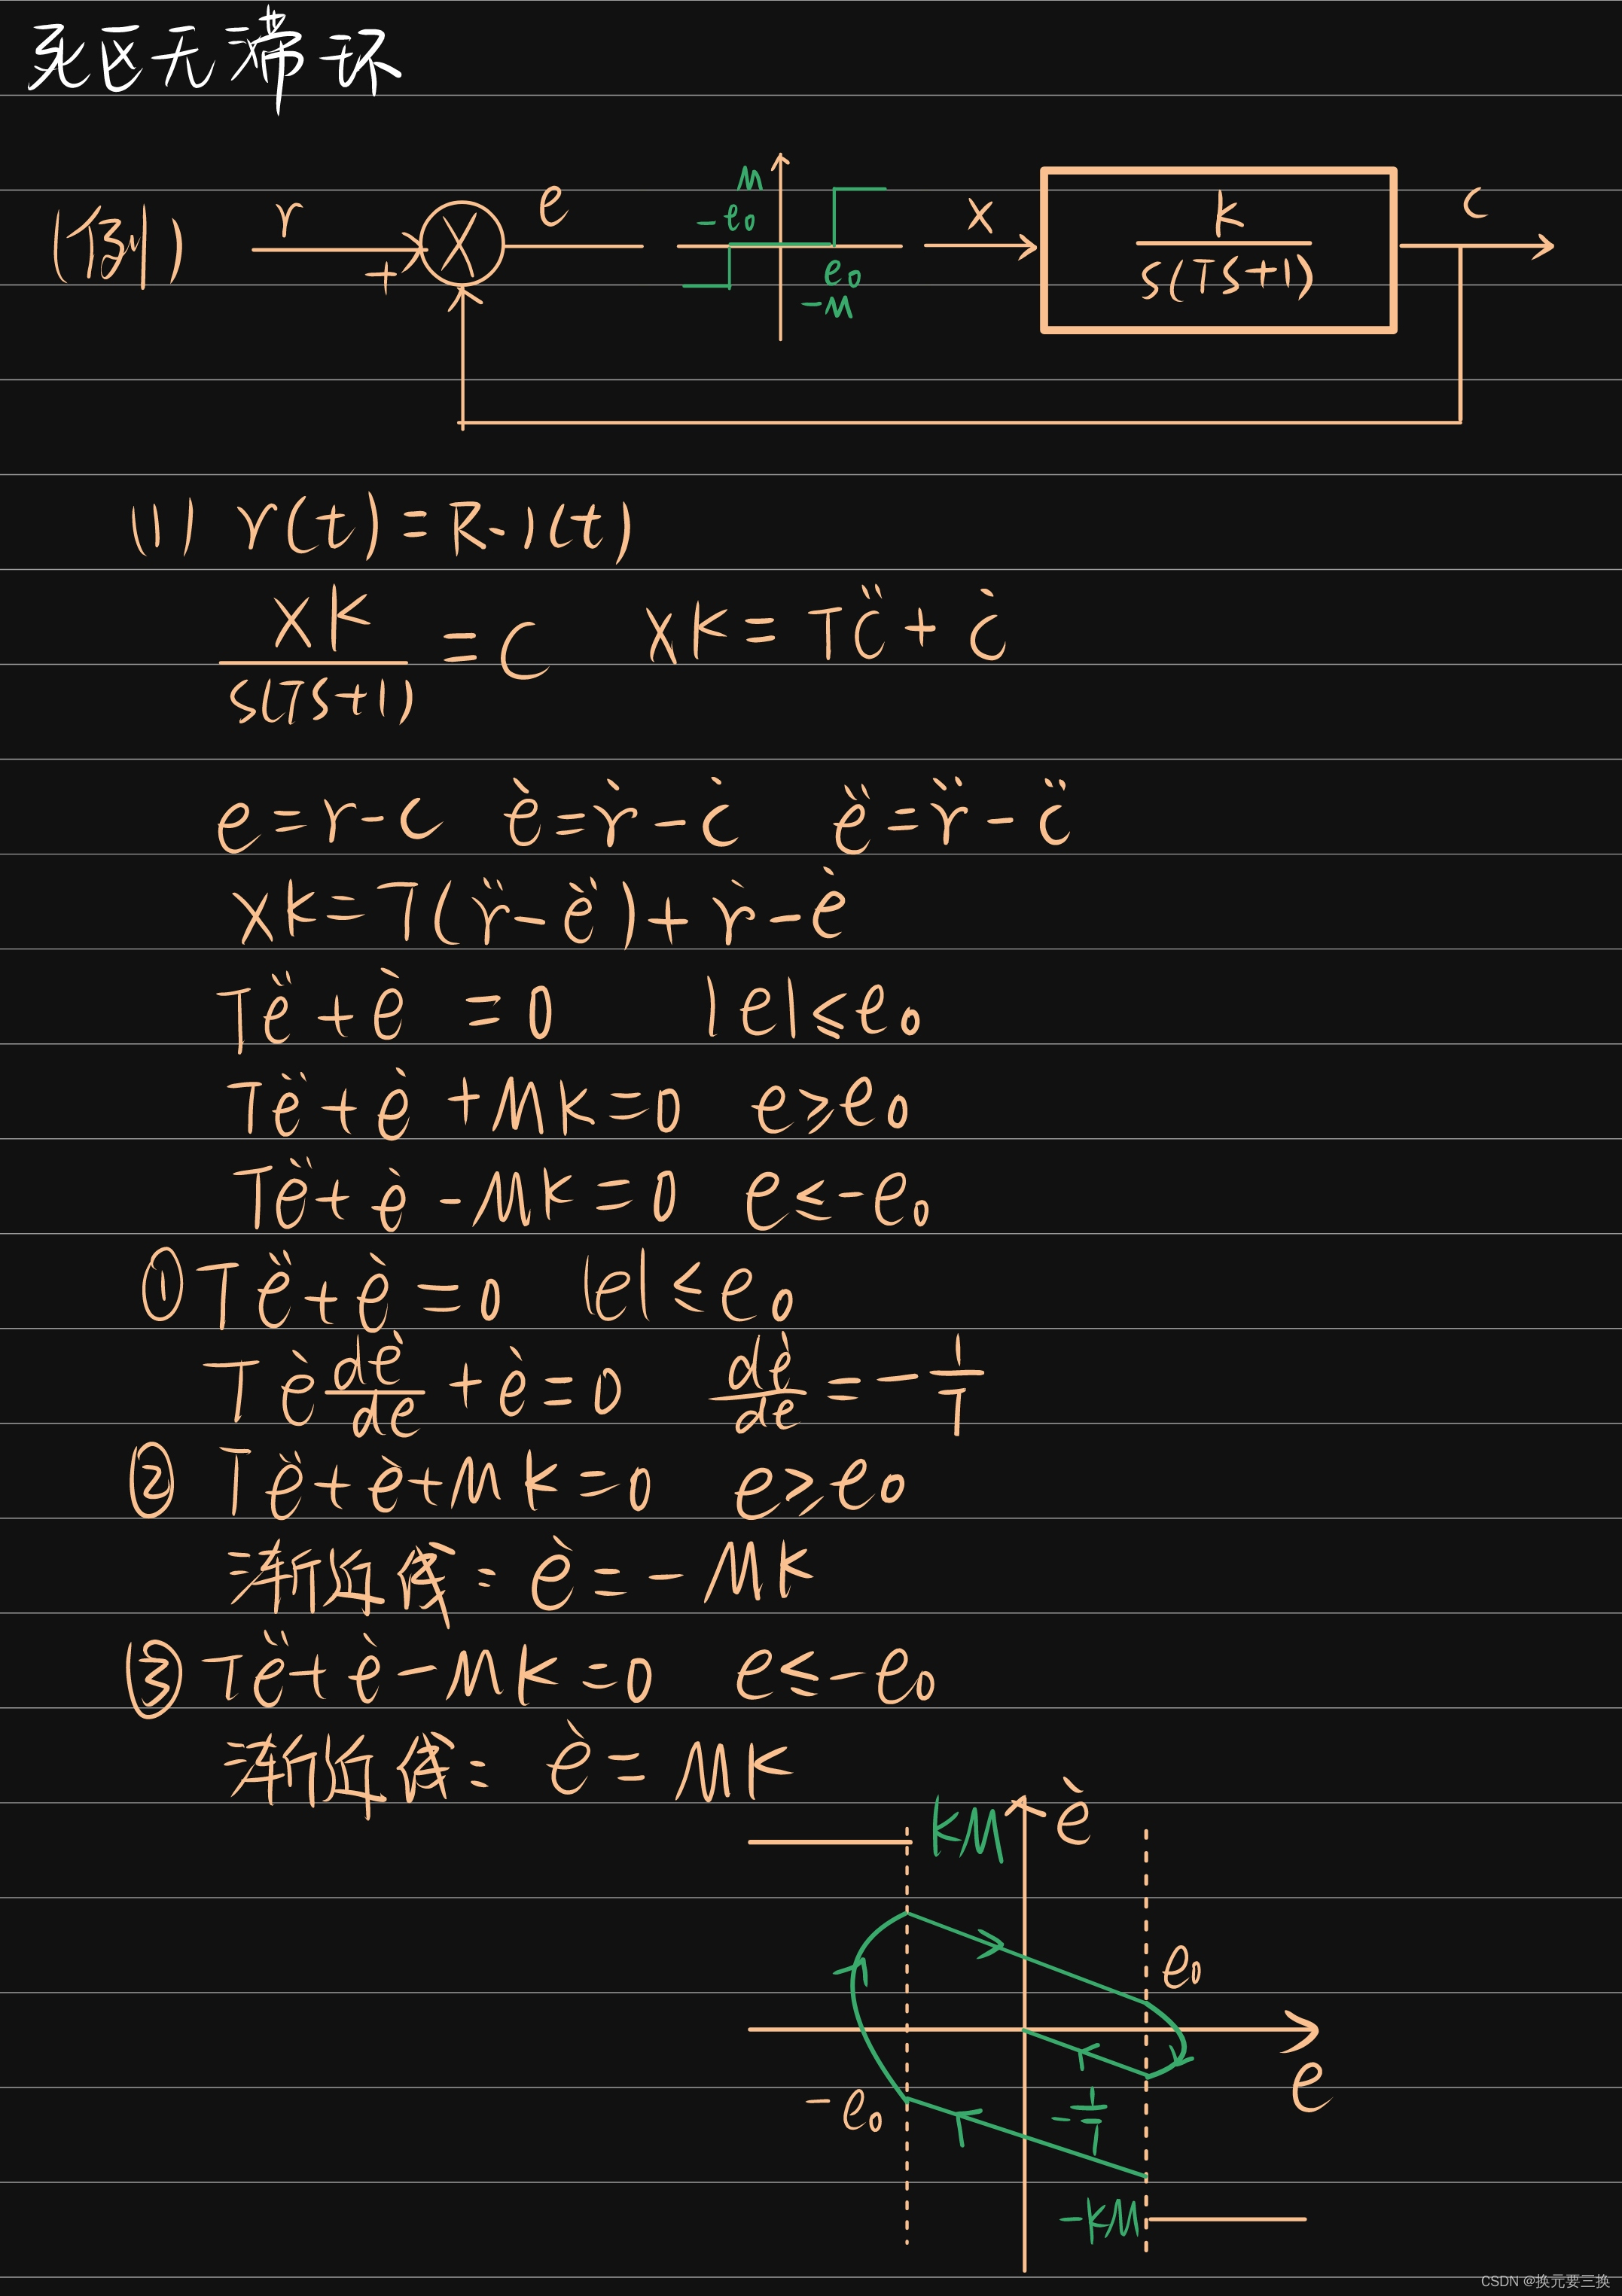 死区无滞环
(例) r + e M -e₀ e₀ -M x K/(S(TS+1)) C
(1) r(t)=R·1(t)
XK/(S(TS+1)) = C XK=Tc̈+ċ
e=r-c ė=ṙ-ċ ë=r̈-c̈
XK=T(r̈-ë)+ṙ-ė
Të+ė =0 |e|≤e₀
Të+ė +MK=0 e≥e₀
Të+ė -MK=0 e≤-e₀
①Të+ė=0 |e|≤e₀
Tė dė/de +ė=0 dė/de=-1/T
② Të+ė+MK=0 e≥e₀
渐近线: ė=-MK
③ Të+ė-MK=0 e≤-e₀
渐近线: ė=MK
KM ė
e₀
e
-e₀ -1/T
-KM
CSDN @换元要三换